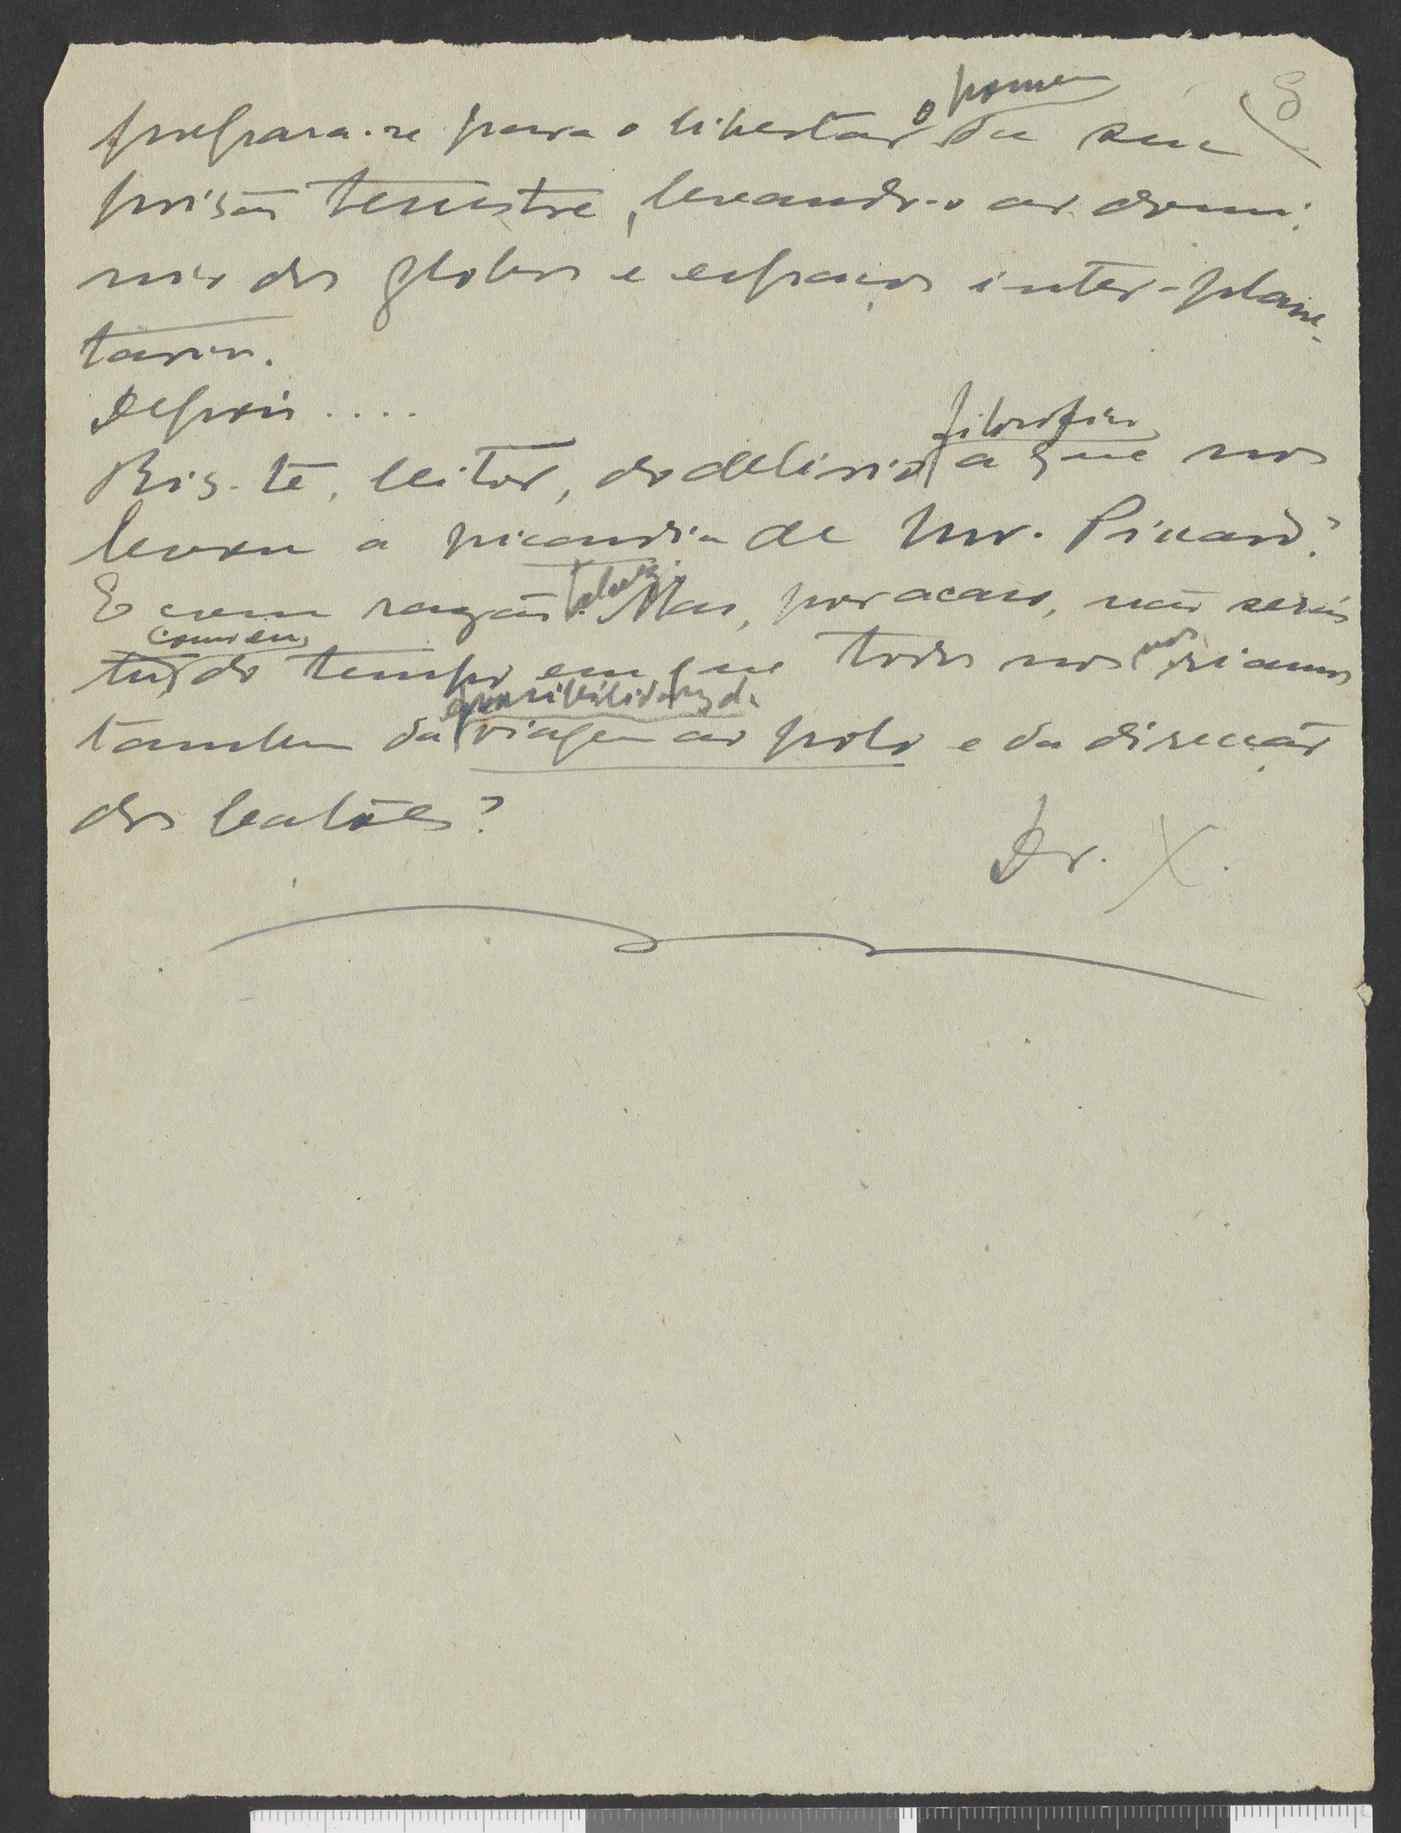 8
prepara-se para o libertar o homem da sua
prisão terrestre, levando-o ao domi-
nio dos globos e espaços inter-plane-
tarios.
Depois....
Ris-te, leitor, do delirio filosofico a que nos
levou a picardia de Mr. Picard?
E com razão talvez. Mas, por acaso, não serás
tu, como eu, do tempo em que todos nos nos riamos
tambem da possibilidade da viagem ao polo e da direcção
dos balões?
Dr. X.